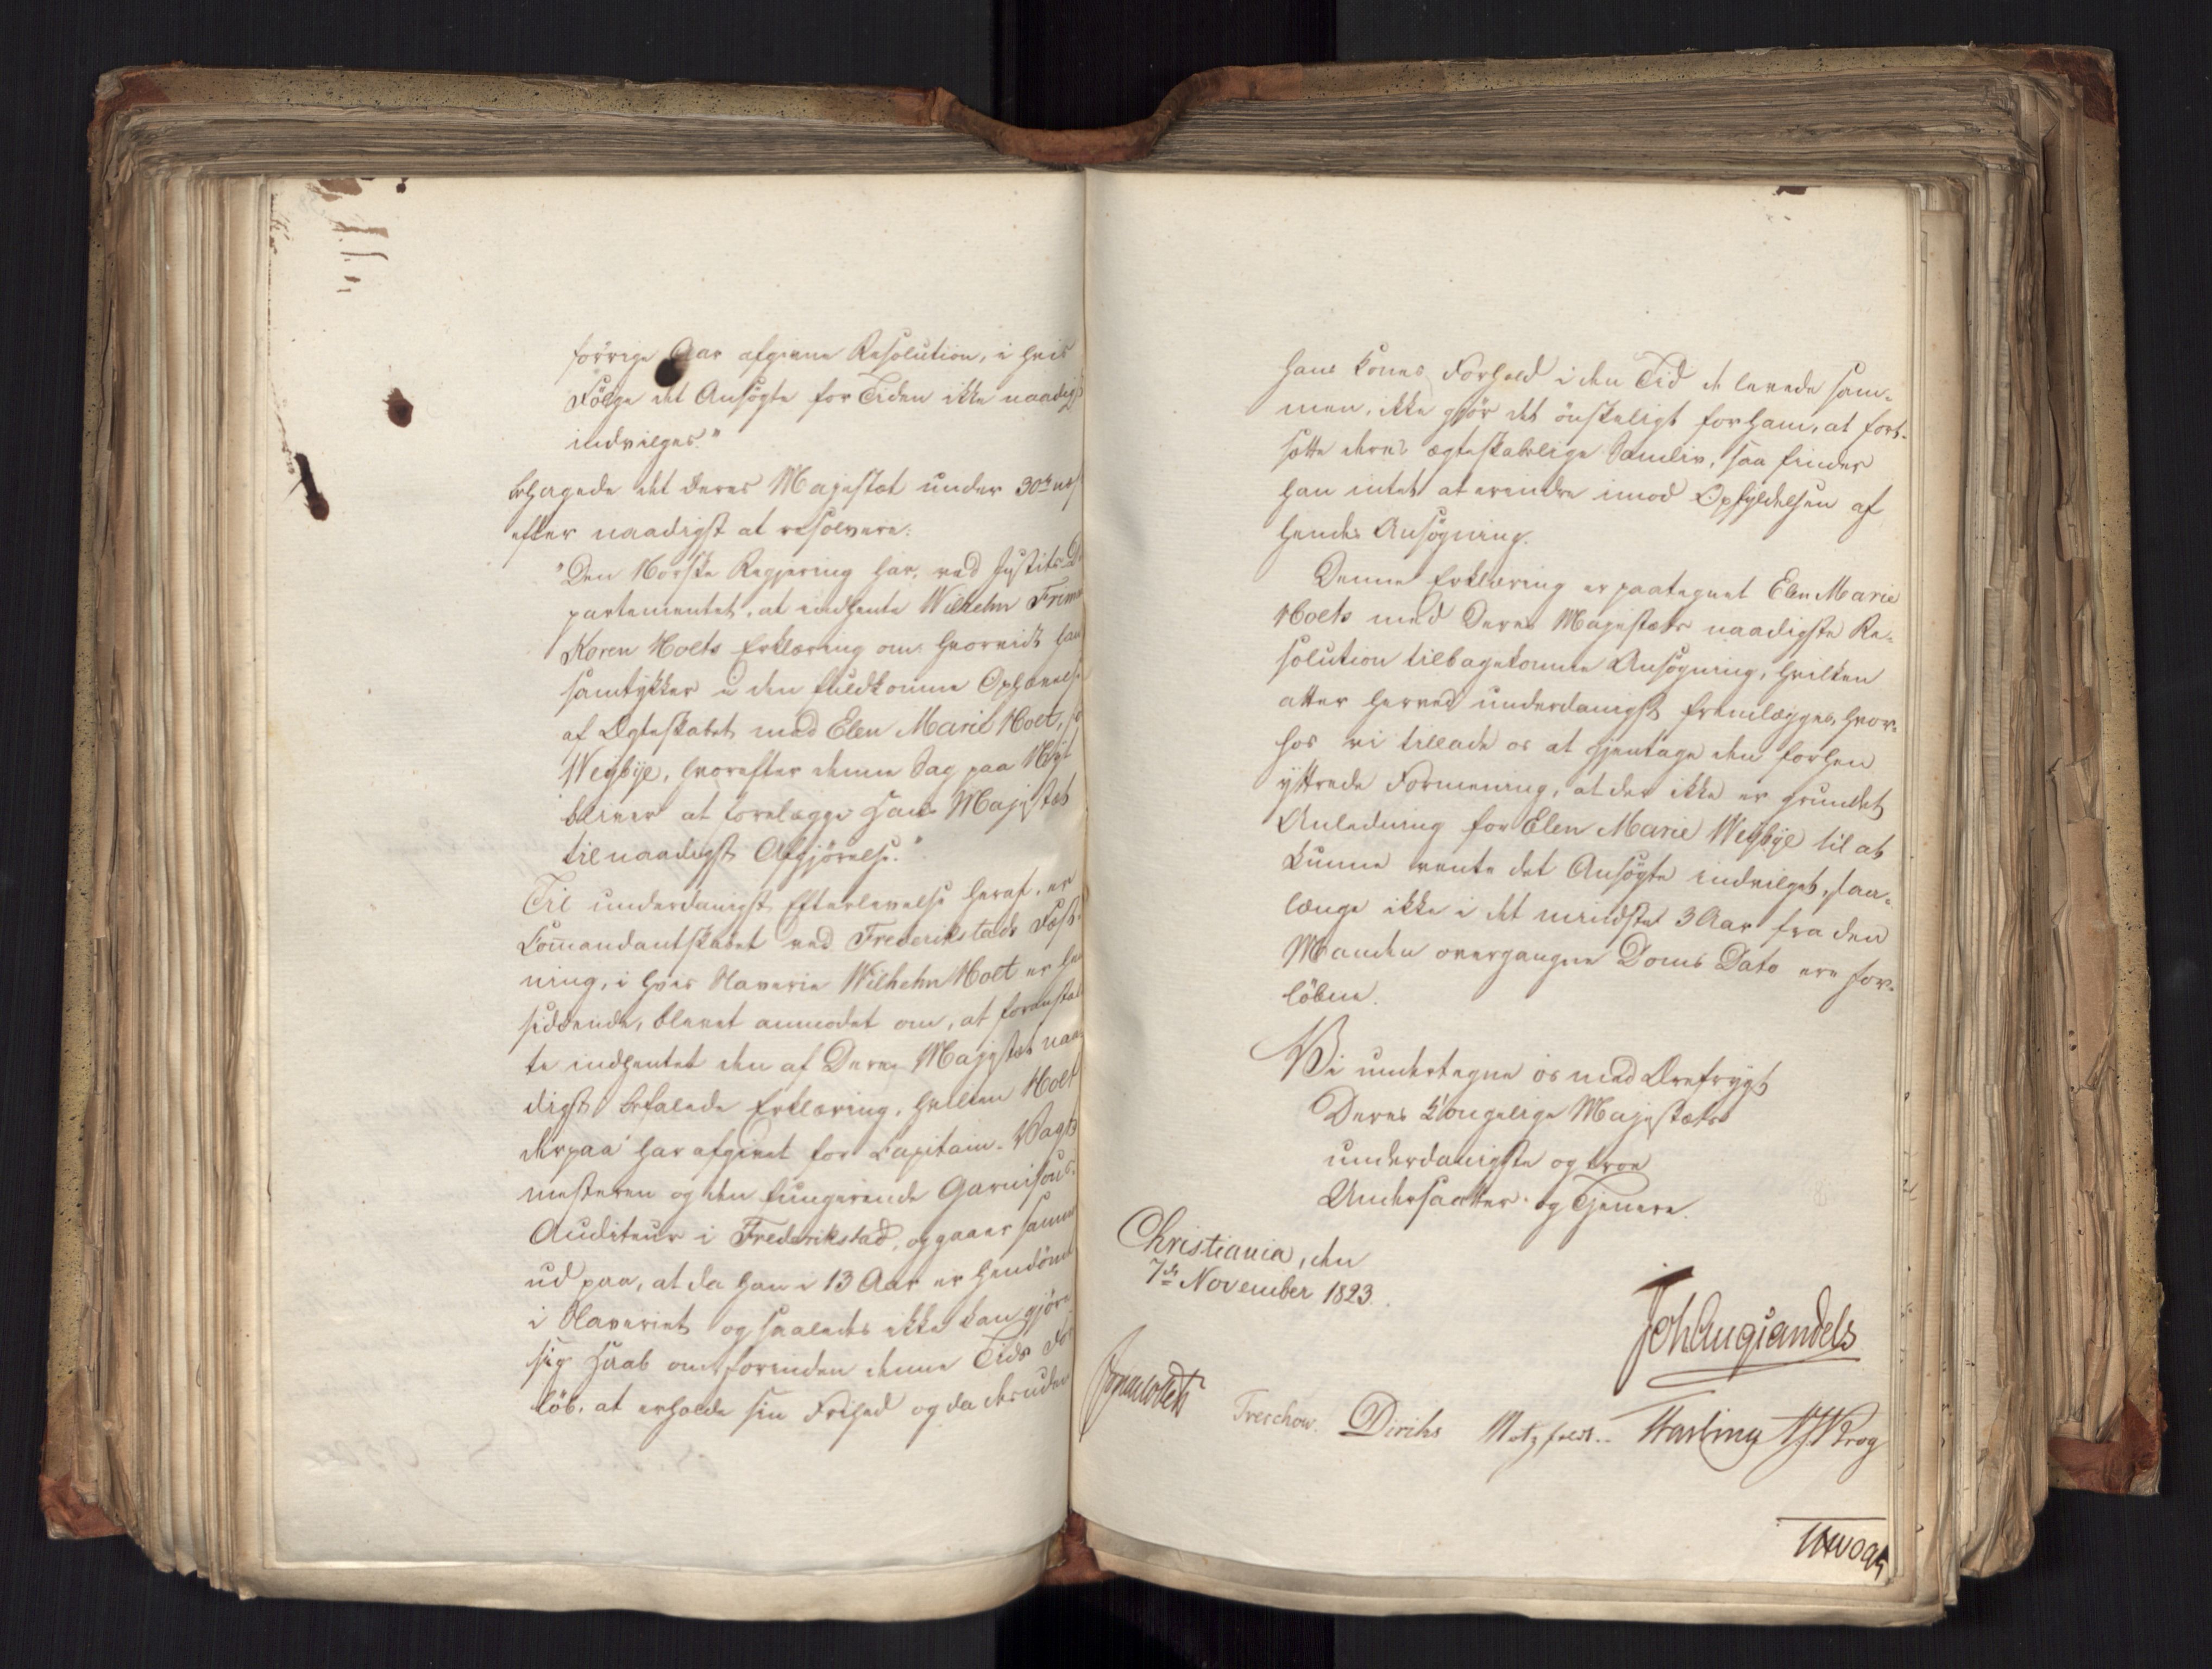 forrige Aar afgivne Resolution, i hvis
Følge det Ansøgte for Tiden ikke naadigst
indvilges."
behagede det Deres Majestæt under 30te
efter naadigst at resolvere:
"Den Norske Regjering har, ved Justits-De
partementet, at indhente Wilhelm Frim
Koren Holts Erklæring om hvorvidt han
samtykker i den fuldkomne Ophævelse
af Ægteskabet med Elen Marie Holt,
Weybye, hvorefter denne Sag paa Nyt
bliver at forelægge Hans Majestæt
til naadigst Afgjørelse."
Til underdanigst Efterlevelse heraf, er
Commandantskabet ved Frederikstads Fæst-
ning, i hvis Slaverie Wilhelm Holt er hen
siddende, blevet anmodet om, at foranstal
te indhentet den af Deres Majestæt naa
digst befalede Erklæring, hvilken Holt
derpaa har afgivet for Capitain-Vagt
mesteren og den fungerende Garnisons-
Auditeur i Frederikstad, og gaaer samme
ud paa, at da han i 13 Aar er hendømt
i Slaveriet og saaledes ikke kan gjøre
sig Haab om, forinden denne Tids For
løb, at erholde sin Frihed og da desuden
hans Kones Forhold i den Tid de levede sam-
men, ikke gjør det ønskeligt for ham, at fort-
sætte deres ægteskabelige Samliv, saa finder
han intet at erindre imod Opfyldelsen af
hendes Ansøgning.
Denne Erklæring er paategnet Elen Marie
Holts med Deres Majestæts naadigste Re-
solution tilbagekomne Ansøgning, hvilken
atter herved underdanigst fremlægges, hvor-
hos vi tillade os at gjentage den forhen
yttrede Formening, at der ikke er grundet
Anledning for Elen Marie Weybye til at
kunne vente det Ansøgte indvilget, saa-
længe ikke i det mindste 3 Aar fra den
Manden overgangne Doms Dato ere for-
løbne.
Vi undertegne os med Ærefrygt
Deres Kongelige Majestæts
underdanigste og troe
Undersaatter og Tjenere.
Christiania, den
7de November 1823.
Joh Aug Sandels
Treschow. Diriks Motzfeldt. Fasting Krog